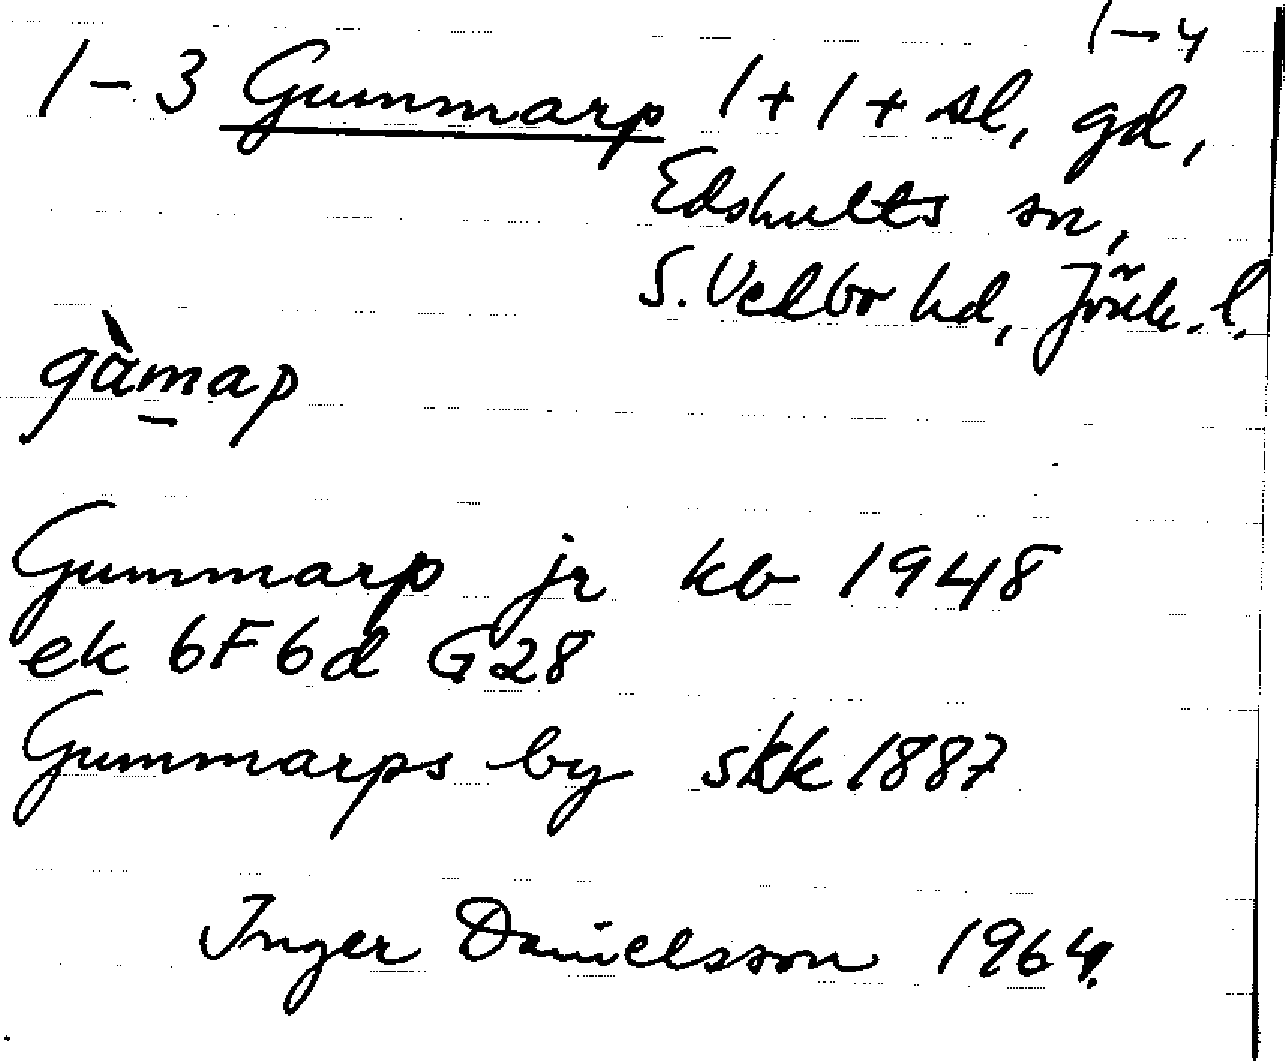 1-4
1-3 Gummarp 1+1+sl, gd,
Edshults sn,
S. Vedbo hd, Jönk. l.
gàmap
Gummarp jr kb 1948
ek 6F6d G28
Gummarps by skk 1887
Inger Danielsson 1964.